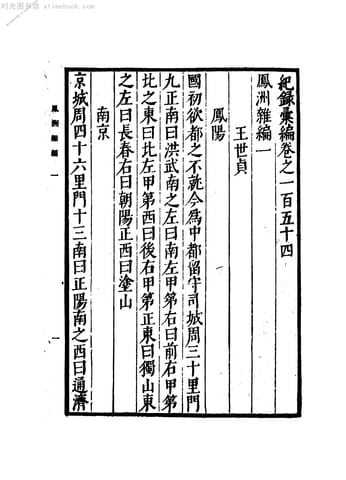 时光图书馆 · atimebook.com
紀錄彙編卷之一百五十四
鳳洲雜編一
王世貞
鳳陽
國初欲都之不就今為中都留守司城周三十里門
九正南曰洪武南之左曰南左甲第右曰前右甲第
北之東曰北左甲第西曰後右甲第正東曰獨山東
之左曰長春右曰朝陽正西曰塗山
南京
京城周四十六里門十三南曰正陽南之西曰通濟
鳳洲雜編 一
一